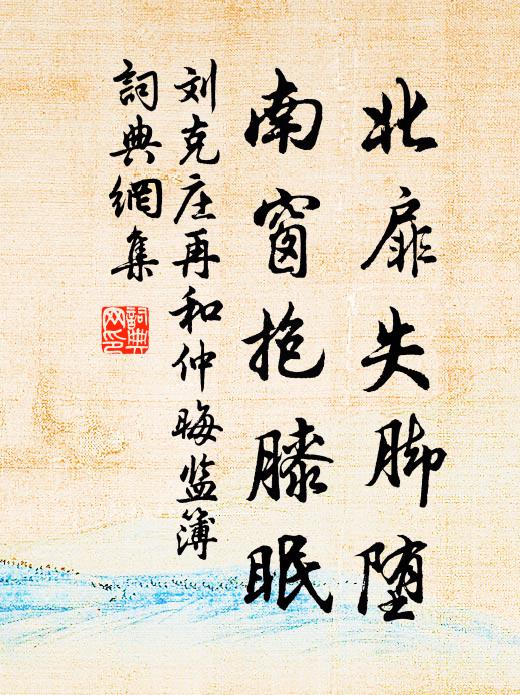 北扉失脚堕
南窗抱膝眠
刘克庄再和仲晦监簿
詞典網集
詞典
网印